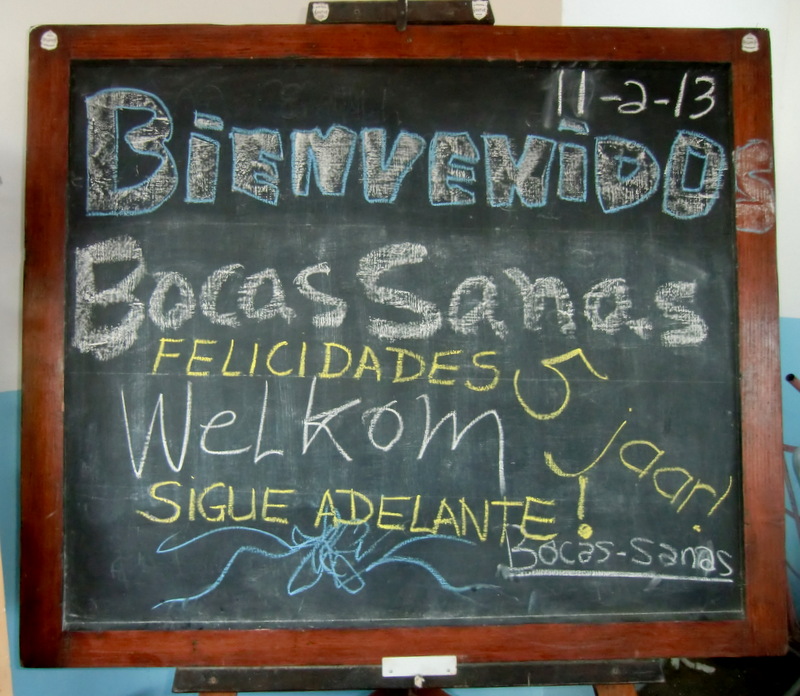 11-2-13
BiENVENiDOS
Bocas Sanas
FELICIDADES 5
WeLkom jaar!
SiGUE ADELANTE!
Bocas-Sanas